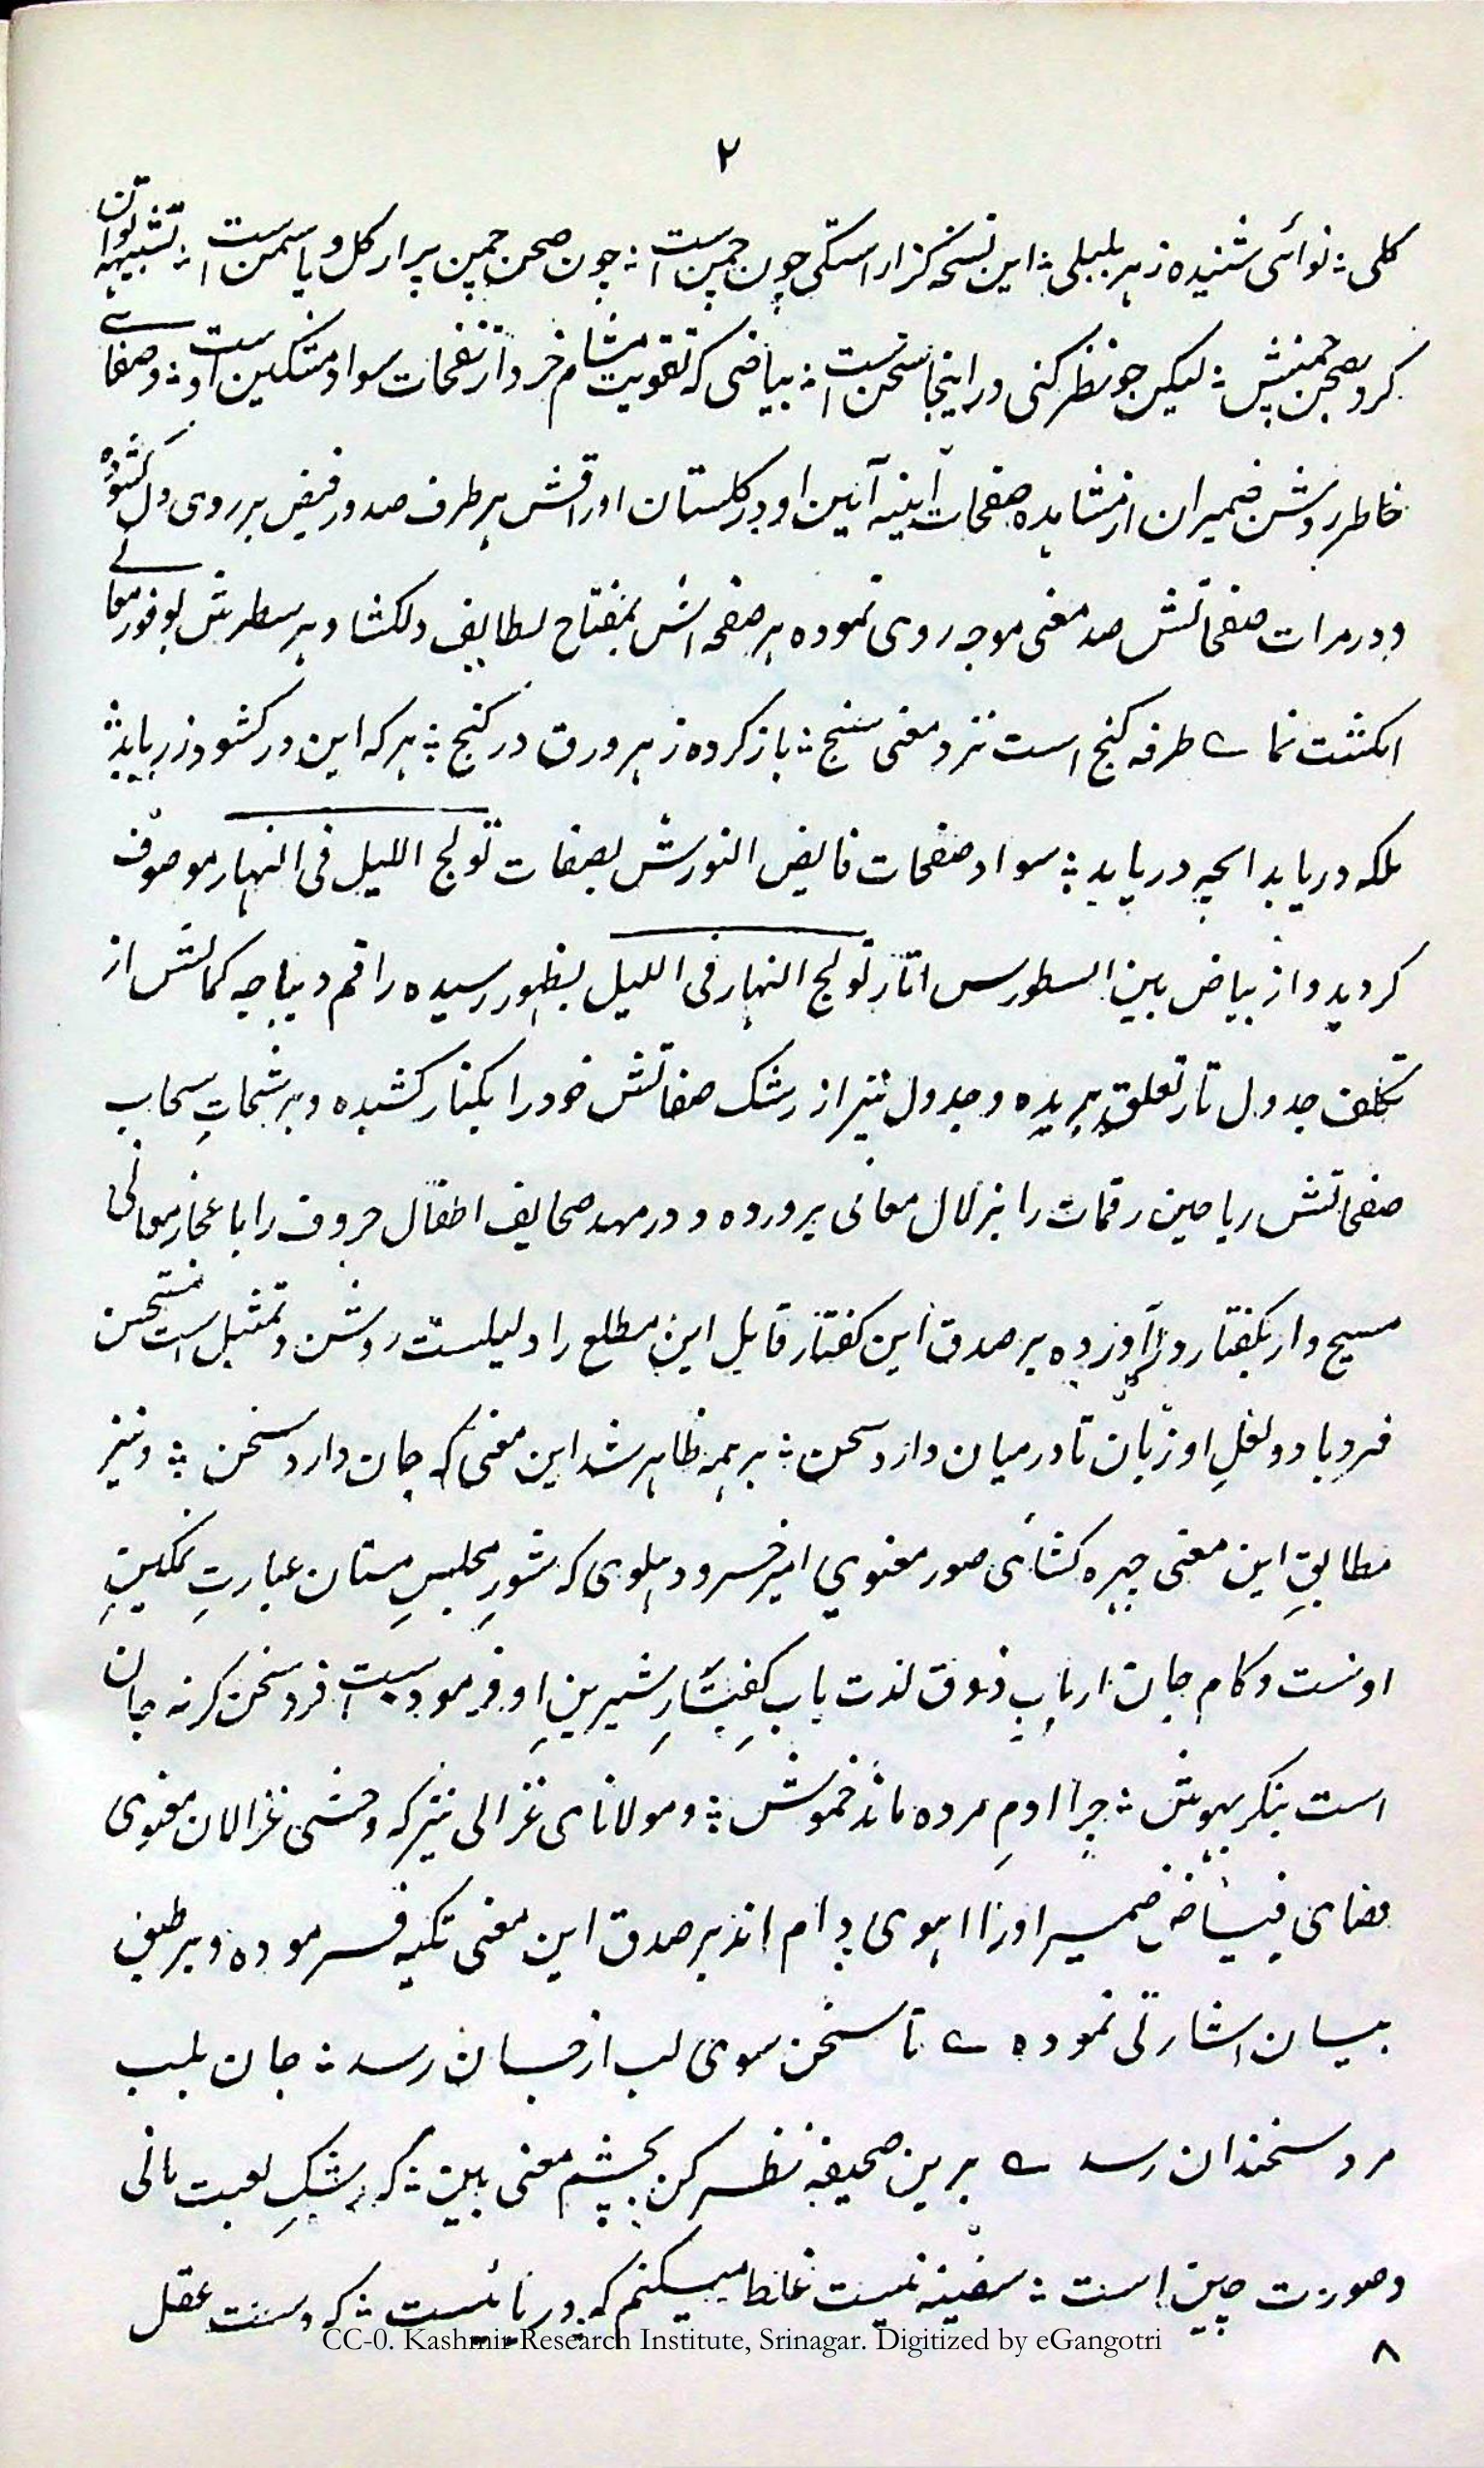 ۲
کلی ؞ نوائی شنیده ز هر بلبلی ؞ این نسخه کز اراستکی چون چمن است ؞ چون صحن چمن پر از کل و یاسمن است ؞ تشبیهه توان
کرد بصحن چمنش ؞ لیکن چو نظر کنی در اینجا سخن است ؞ بیاضی که تقویت مشام خرد از نفحات سواد مشکین اوست ؞ و صفاے
خاطر روشن ضمیران از مشاهده صفحات آینه آیین او در کلستان اوراقش هر طرف صد در فیض بر روی دل کشوده
و در مرات صفحاتش صد معنی موجه روی نموده هر صفحه اش بمفتاح لطایف دلکشا و هر سطرش بوفور معانے
انکشت نما ے طرفه کنج است نزد معنی سنج ؞ باز کرده ز هر ورق در کنج ؞ هر که این در کشود زر یابد ؞
بلکه دریابد انچه دریابد ؞ سواد صفحات فایض النورش بصفات تولج اللیل فی النهار موصوف
کردید و از بیاض بین السطورس اثار تولج النهار فی اللیل بظهور رسیده راقم دیباچه کمالش از
تکلف جدول تار تعلق بریده و جدول نیز از رشک صفاتش خود را بکنار کشیده و برشحات سحاب
صفحاتش ریاحین رقمات را بزلال معانی پرورده و در مهد صحایف اطفال حروف را باعجاز معانی
مسیح وار بکفتار در آورده بر صدق این کفتار قایل این مطلع را دلیلست روشن و تمثیل است مستحسن
فرد با دو لعلِ او زبان تا در میان دارد سخن ؞ بر همه ظاهر شد این معنی که جان دارد سخن ؞ و نیز
مطابقِ این معنی چهره کشای صور معنوی امیر خسرو دهلوی که شورِ مجلسِ مستان عبارتِ نمکینِ
اوست و کام جان اربابِ ذوق لذت یابِ کفتارِ شیرینِ او فرموده است فرد سخن کر نه جان
است بنکر بهوش ؞ چرا ادمِ مرده ماند خموش ؞ و مولانای غزالی نیز که وحشی غزالان معنوی
فضای فیاض ضمیر او را اهوی دام اند بر صدق این معنی تکیه فرموده و بر طبق
بیان اشارتی نموده ے تا سخن سوی لب از جان رسد ؞ جان بلب
مرد سخندان رسد ے برین صحیفه نظر کن بچشم معنی بین ؞ که رشکِ لعبت مانی
و صورت چین است ؞ سفینه نیست غلط میکنم که دریائیست ؞ که دست عقل
CC-0. Kashmir Research Institute, Srinagar. Digitized by eGangotri
۸